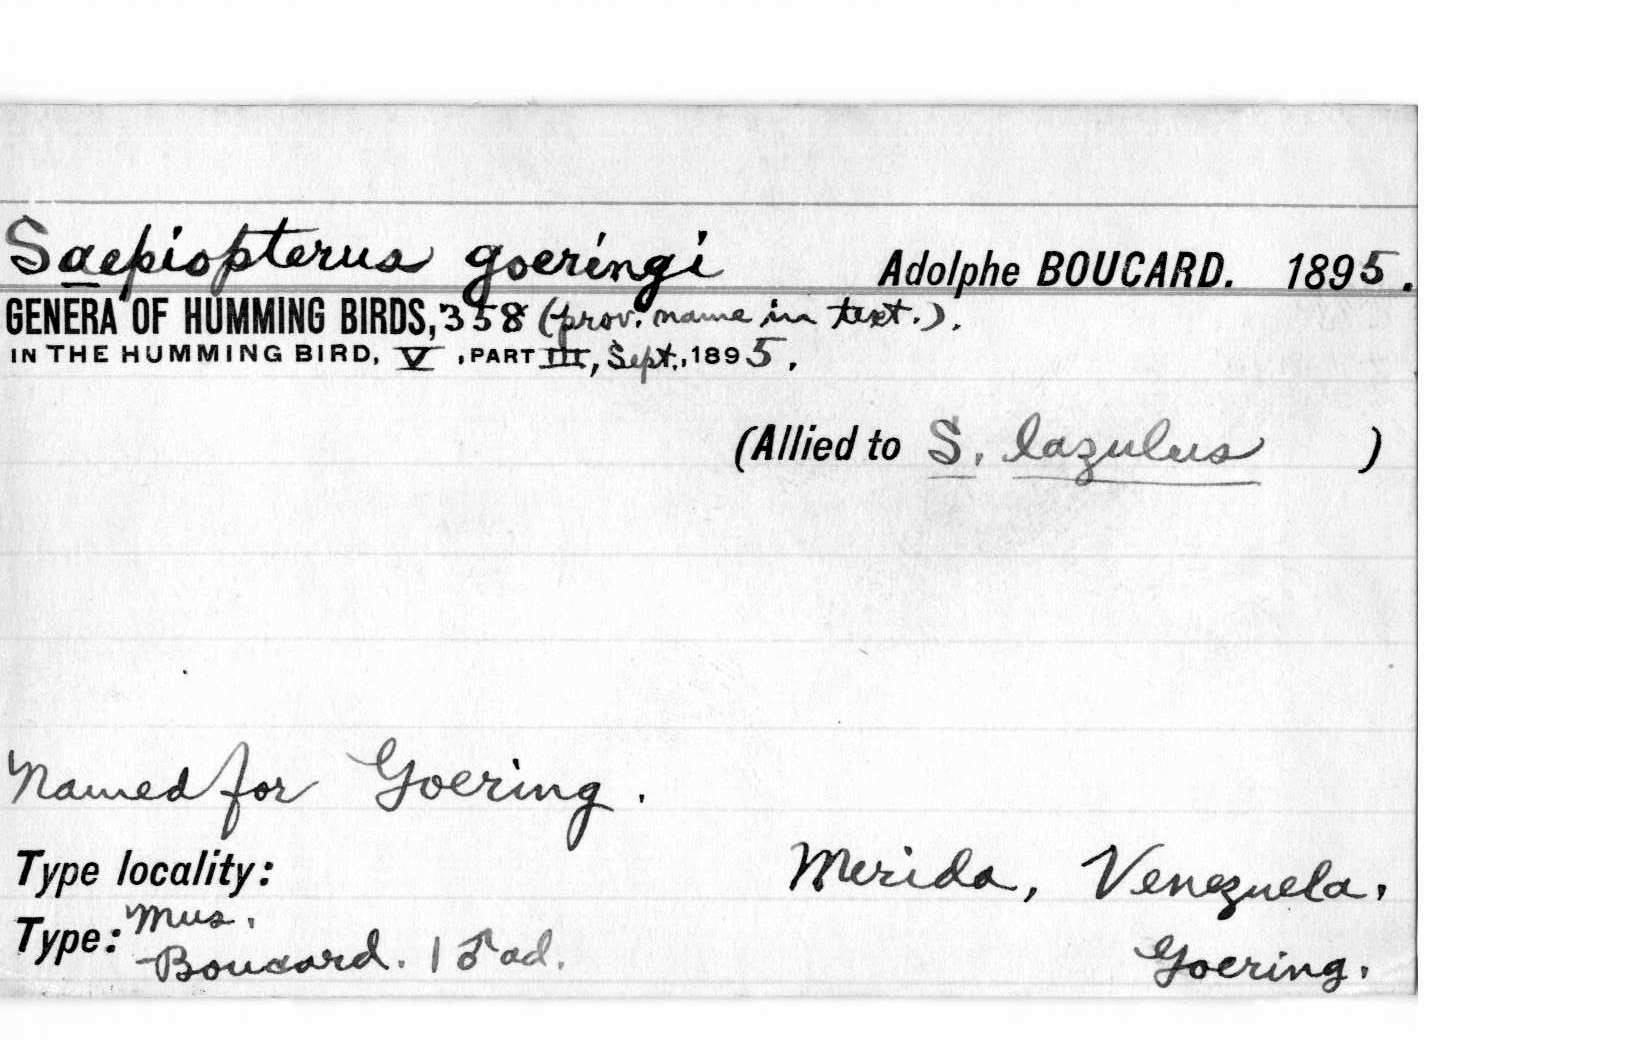 Saepiopterus goeringi Adolphe BOUCARD. 1895.
GENERA OF HUMMING BIRDS, 358 (prov. name in text.).
IN THE HUMMING BIRD, V, PART III, Sept., 1895.
(Allied to S. lazulus )
Named for Goering.
Type locality: Merida, Venezuela.
Type: Mus. Boucard. 1 ♂ ad. Goering.